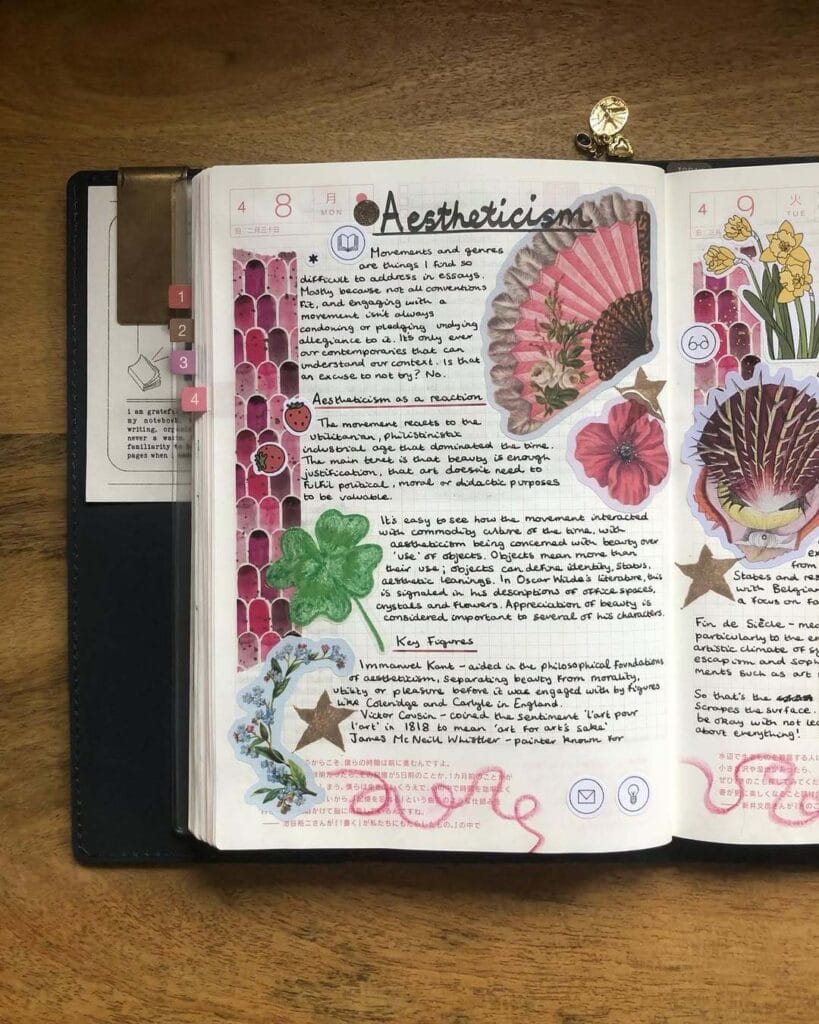 4 8 月 MON
旧 二月三十日
Aestheticism
Movements and genres
are things I find so
difficult to address in essays.
Mostly because not all conventions
fit, and engaging with a
movement isn't always
condoning or pledging undying
allegiance to it. It's only ever
our contemporaries that can
understand our context. Is that
an excuse to not try? No.
Aestheticism as a reaction
The movement reacts to the
utilitarian, philistinistic
industrial age that dominated the time.
The main tenet is that beauty is enough
justification, that art doesn't need to
fulfil political, moral or didactic purposes
to be valuable.
It's easy to see how the movement interacted
with commodity culture of the time, with
aestheticism being concerned with beauty over
'use' of objects. Objects mean more than
their use; objects can define identity, status,
aesthetic leanings. In Oscar Wilde's literature, this
is signaled in his descriptions of office spaces,
crystals and flowers. Appreciation of beauty is
considered important to several of his characters.
Key Figures
Immanuel Kant - aided in the philosophical foundations
of aestheticism, separating beauty from morality,
utility or pleasure before it was engaged with by figures
like Coleridge and Carlyle in England.
Victor Cousin - coined the sentiment 'l'art pour
l'art' in 1818 to mean 'art for art's sake'
James McNeill Whistler - painter known for
1
2
3
4
i am grateful
my notebook
writing,
never a
familiarity to
pages when i
4 9 火 TUE
from
States and
with Belgian
a focus on
Fin de Siècle -
particularly to the
artistic climate of
escapism and
ments such as art
So that's the
scrapes the surface.
be okay with not
about everything!